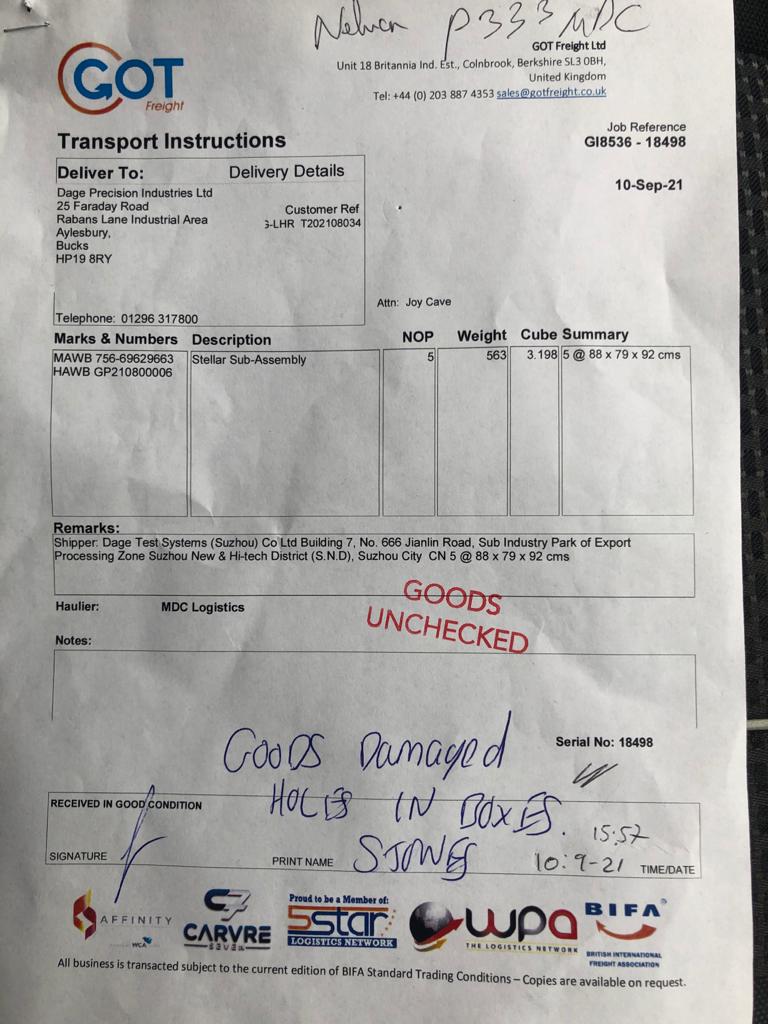 P333 MDC
GOT
Freight
GOT Freight Ltd
Unit 18 Britannia Ind. Est., Colnbrook, Berkshire SL3 0BH,
United Kingdom
Tel: +44 (0) 203 887 4353 sales@gotfreight.co.uk
Transport Instructions
Job Reference
GI8536 - 18498
Deliver To: Delivery Details
10-Sep-21
Dage Precision Industries Ltd
25 Faraday Road
Rabans Lane Industrial Area
Aylesbury,
Bucks
HP19 8RY
Customer Ref
-LHR T202108034
Attn: Joy Cave
Telephone: 01296 317800
Marks & Numbers Description NOP Weight Cube Summary
MAWB 756-69629663 Stellar Sub-Assembly 5 563 3.198 5 @ 88 x 79 x 92 cms
HAWB GP210800006
Remarks:
Shipper: Dage Test Systems (Suzhou) Co Ltd Building 7, No. 666 Jianlin Road, Sub Industry Park of Export
Processing Zone Suzhou New & Hi-tech District (S.N.D), Suzhou City CN 5 @ 88 x 79 x 92 cms
Haulier: MDC Logistics
GOODS
UNCHECKED
Notes:
GOODS Damaged
Serial No: 18498
HOLES IN BOXES.
RECEIVED IN GOOD CONDITION
15:57
SIGNATURE
PRINT NAME SJONES 10:9-21 TIME/DATE
AFFINITY
WCA
C7
CARVRE
SEVEN
Proud to be a Member of:
5star
LOGISTICS NETWORK
wpa
THE LOGISTICS NETWORK
BIFA
BRITISH INTERNATIONAL
FREIGHT ASSOCIATION
All business is transacted subject to the current edition of BIFA Standard Trading Conditions – Copies are available on request.